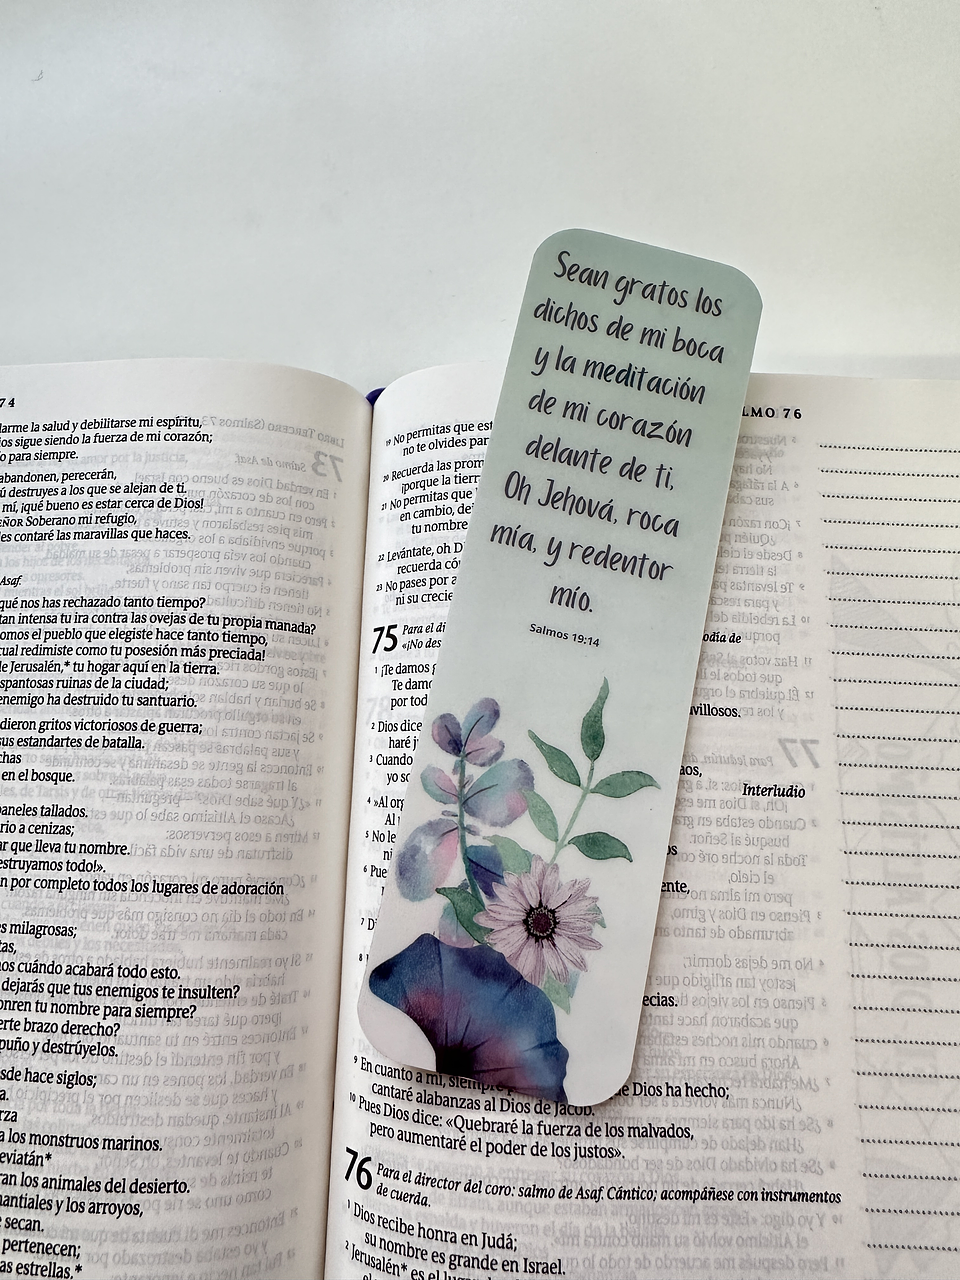 Sean gratos los
dichos de mi boca
y la meditación
de mi corazón
delante de ti,
Oh Jehová, roca
mía, y redentor
mío.
Salmos 19:14
74
larme la salud y debilitarse mi espíritu,
ios sigue siendo la fuerza de mi corazón;
o para siempre.
abandonen, perecerán,
ú destruyes a los que se alejan de ti.
mí, ¡qué bueno es estar cerca de Dios!
EÑOR Soberano mi refugio,
les contaré las maravillas que haces.
Asaf.
qué nos has rechazado tanto tiempo?
tan intensa tu ira contra las ovejas de tu propia manada?
omos el pueblo que elegiste hace tanto tiempo,
cual redimiste como tu posesión más preciada!
de Jerusalén,* tu hogar aquí en la tierra.
spantosas ruinas de la ciudad;
enemigo ha destruido tu santuario.
dieron gritos victoriosos de guerra;
sus estandartes de batalla.
chas
en el bosque.
paneles tallados.
rio a cenizas;
ar que lleva tu nombre.
estruyamos todo!».
n por completo todos los lugares de adoración
s milagrosas;
tas,
nos cuándo acabará todo esto.
dejarás que tus enemigos te insulten?
onren tu nombre para siempre?
erte brazo derecho?
puño y destrúyelos.
sde hace siglos;
a.
rza
a los monstruos marinos.
eviatán*
ran los animales del desierto.
nantiales y los arroyos,
secan.
pertenecen;
as estrellas.*
LMO 76
19 No permitas que est
no te olvides par
20 Recuerda las prom
¡porque la tierr
21 No permitas que
en cambio, dej
tu nombre
22 Levántate, oh D
recuerda có
23 No pases por a
ni su crecie
75 Para el di
«¡No des
odia de
1 ¡Te damos g
Te damo
por tod
villosos.
2 Dios dice
haré j
3 Cuando
yo so
aos,
Interludio
4 »Al org
Al
5 No le
ni
6 Pue
ente,
7 Di
8
ecias.
9 En cuanto a mí, siempre p e Dios ha hecho;
cantaré alabanzas al Dios de Jacob.
10 Pues Dios dice: «Quebraré la fuerza de los malvados,
pero aumentaré el poder de los justos».
76 Para el director del coro: salmo de Asaf. Cántico; acompáñese con instrumentos
de cuerda.
1 Dios recibe honra en Judá;
su nombre es grande en Israel.
2 Jerusalén* es el